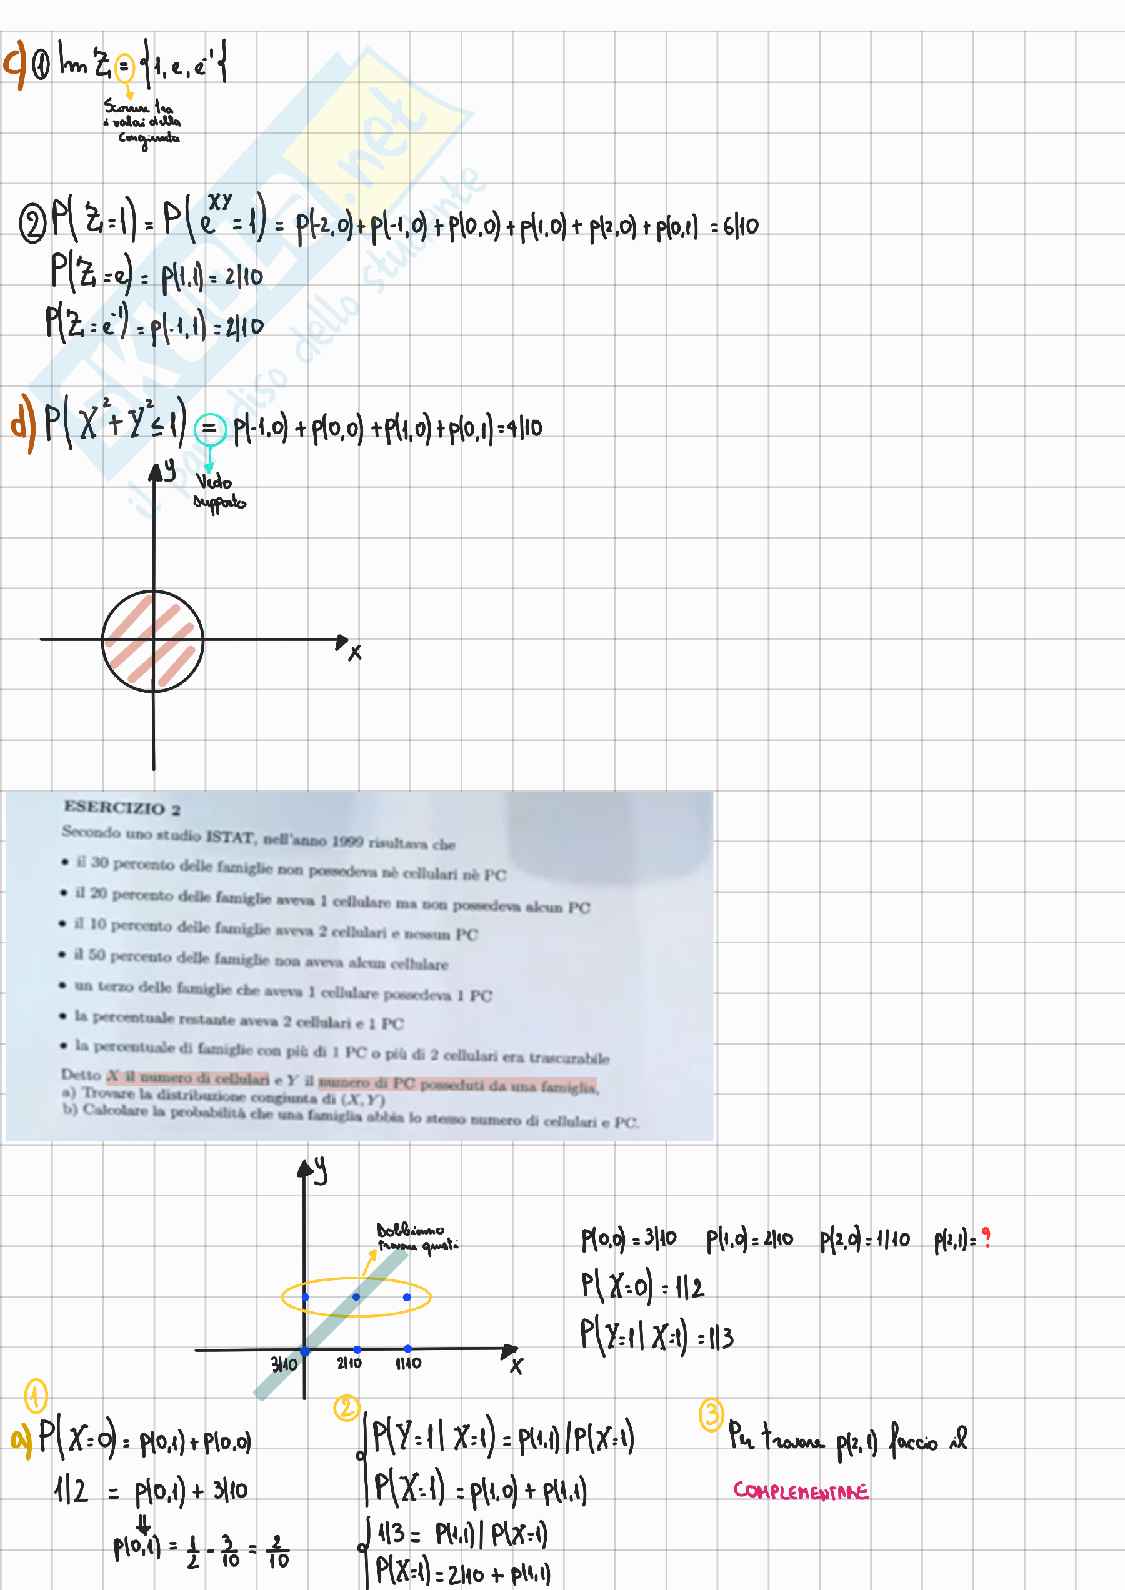 c) ① Im Z = {1, e, e⁻¹}
Scorrere tra
i valori della
Congiunta
② P(Z=1) = P(e^XY = 1) = p(-2,0) + p(-1,0) + p(0,0) + p(1,0) + p(2,0) + p(0,1) = 6/10
P(Z=e) = p(1,1) = 2/10
P(Z=e⁻¹) = p(-1,1) = 2/10
d) P(X²+Y²≤1) = p(-1,0) + p(0,0) + p(1,0) + p(0,1) = 4/10
Vedo
supporto
y
x
SKUOLA.net
il paradiso dello studente
ESERCIZIO 2
Secondo uno studio ISTAT, nell'anno 1999 risultava che
• il 30 percento delle famiglie non possedeva nè cellulari nè PC
• il 20 percento delle famiglie aveva 1 cellulare ma non possedeva alcun PC
• il 10 percento delle famiglie aveva 2 cellulari e nessun PC
• il 50 percento delle famiglie non aveva alcun cellulare
• un terzo delle famiglie che aveva 1 cellulare possedeva 1 PC
• la percentuale restante aveva 2 cellulari e 1 PC
• la percentuale di famiglie con più di 1 PC o più di 2 cellulari era trascurabile
Detto X il numero di cellulari e Y il numero di PC posseduti da una famiglia,
a) Trovare la distribuzione congiunta di (X, Y)
b) Calcolare la probabilità che una famiglia abbia lo stesso numero di cellulari e PC.
y
Dobbiamo
trovare questi
3/10 2/10 1/10 x
p(0,0) = 3/10 p(1,0) = 2/10 p(2,0) = 1/10 p(2,1) = ?
P(X=0) = 1/2
P(Y=1 | X=1) = 1/3
①
a) P(X=0) = p(0,1) + p(0,0)
1/2 = p(0,1) + 3/10
p(0,1) = 1/2 - 3/10 = 2/10
②
P(Y=1 | X=1) = p(1,1) / P(X=1)
P(X=1) = p(1,0) + p(1,1)
1/3 = p(1,1) / P(X=1)
P(X=1) = 2/10 + p(1,1)
③
Per trovare p(2,1) faccio il
COMPLEMENTARE